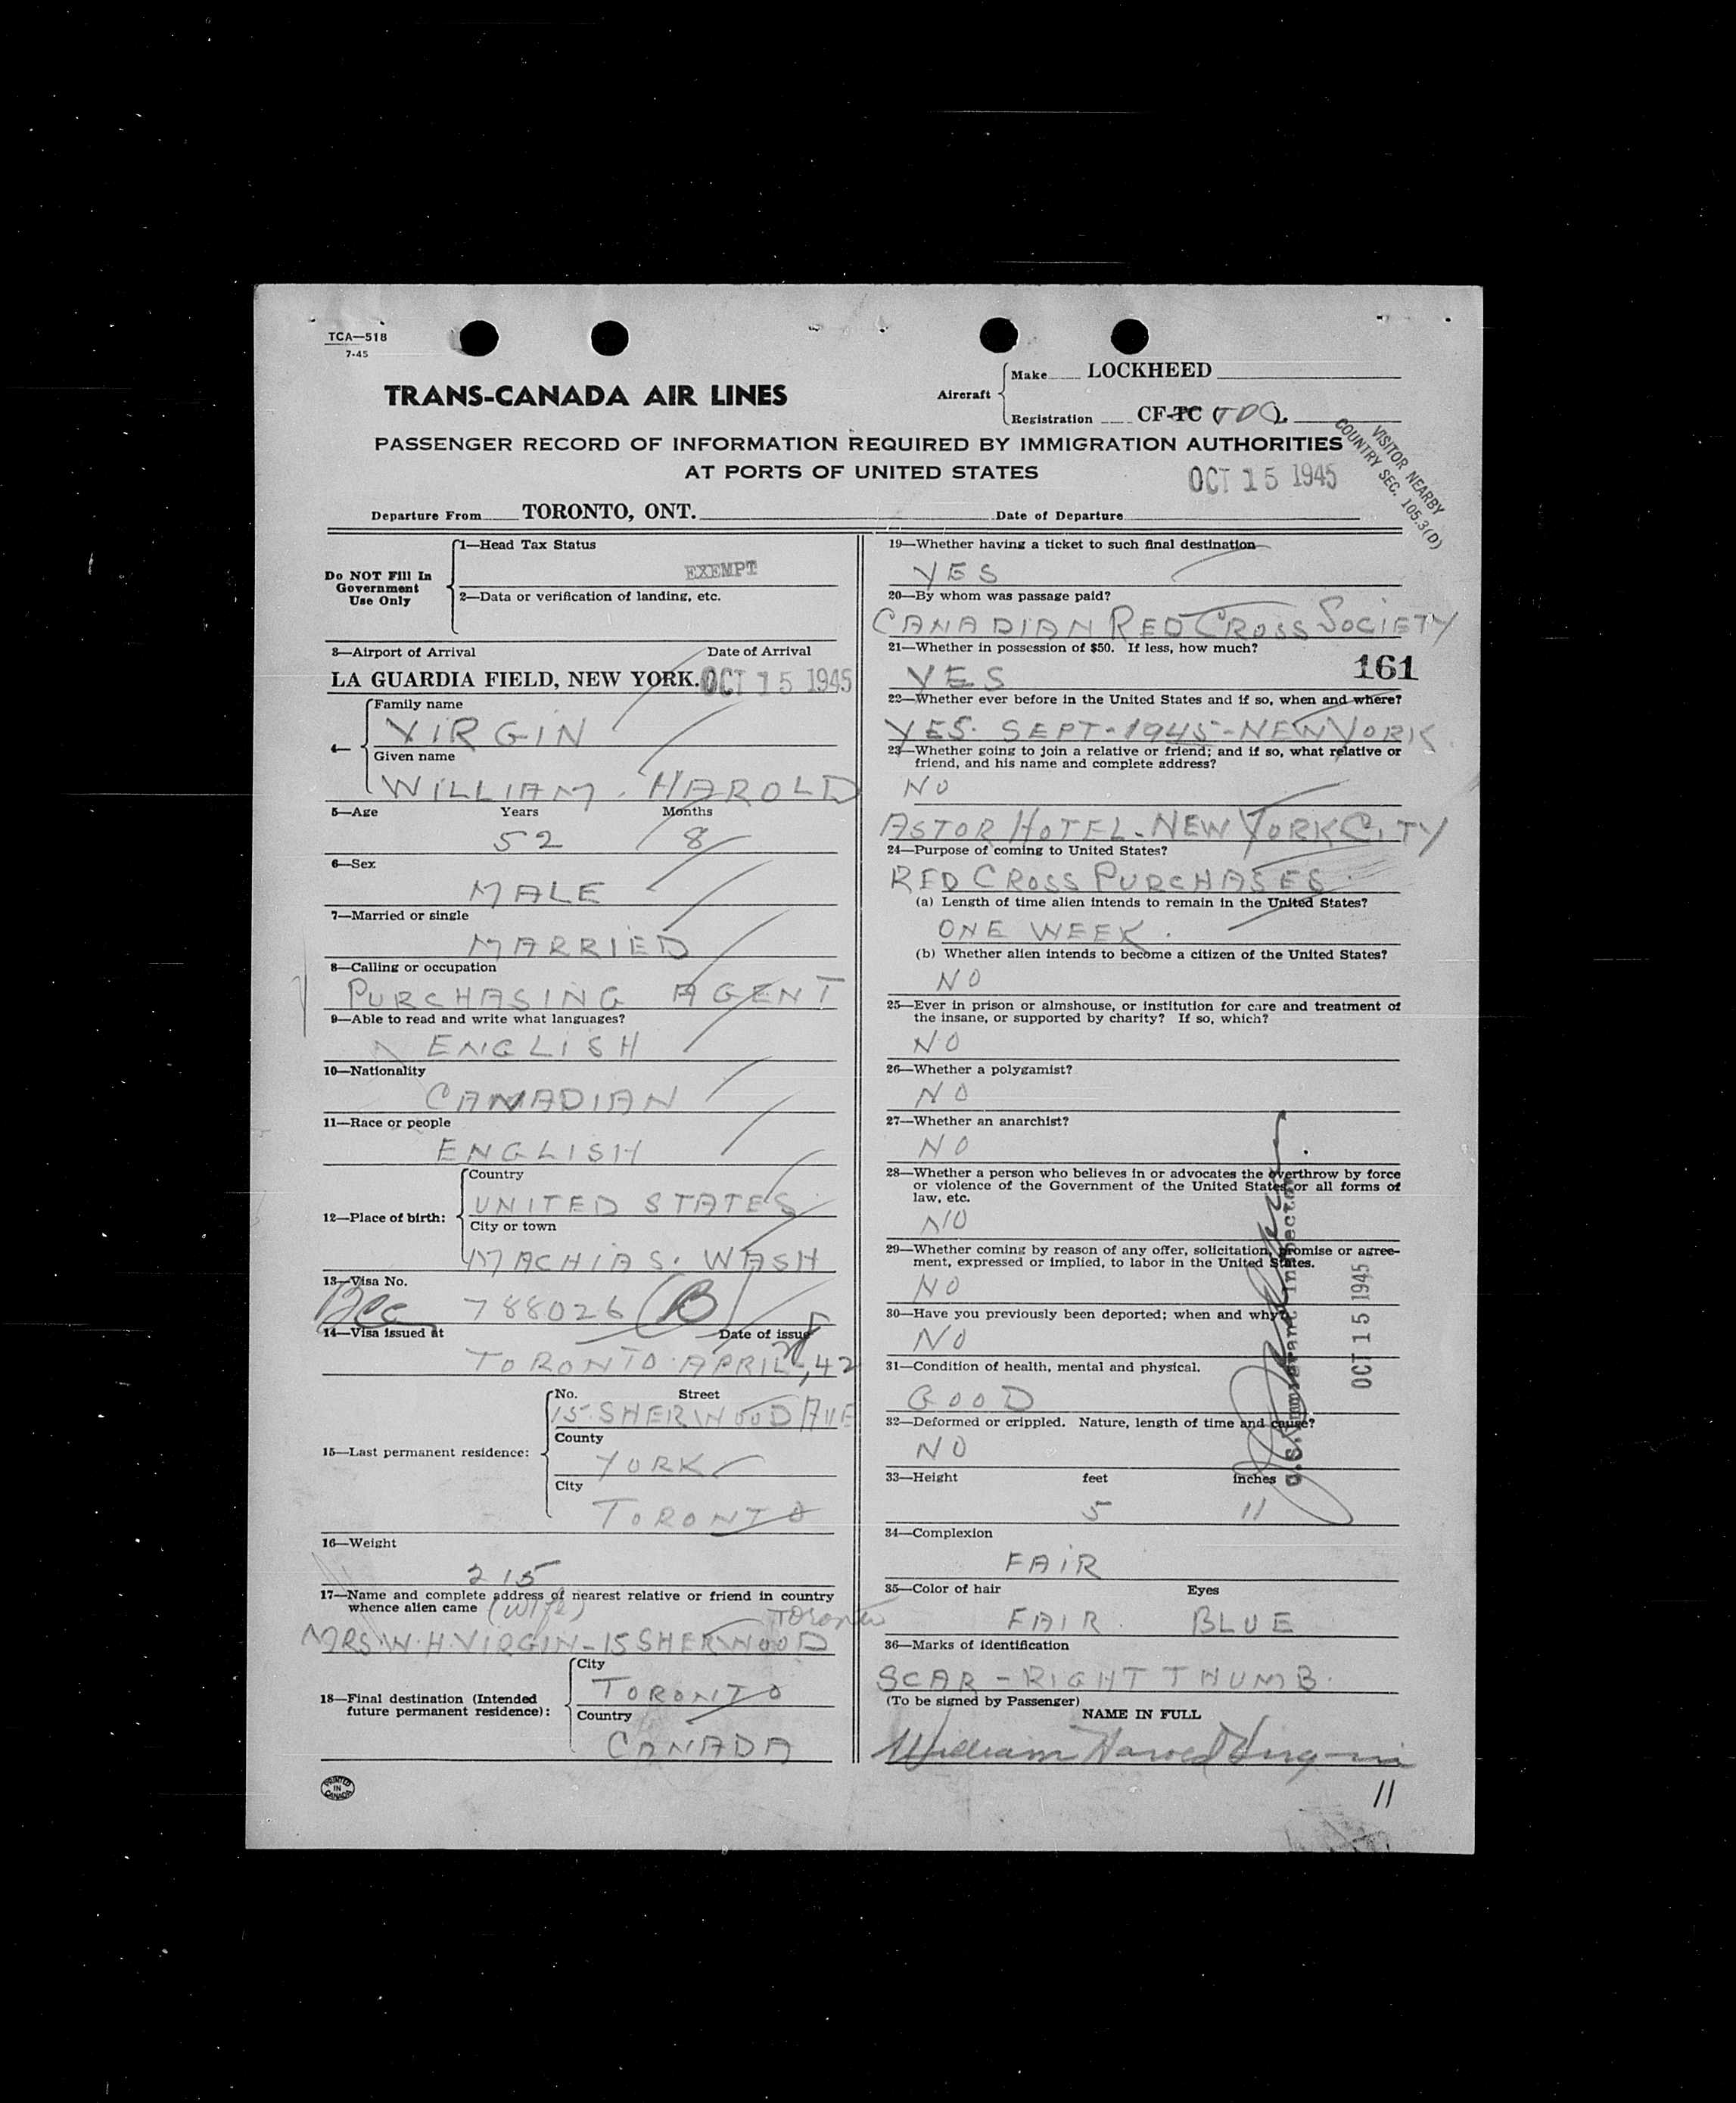 TCA—518
7-45
TRANS-CANADA AIR LINES
Aircraft
Make LOCKHEED
Registration CF-TC
PASSENGER RECORD OF INFORMATION REQUIRED BY IMMIGRATION AUTHORITIES
AT PORTS OF UNITED STATES
OCT 15 1945
VISITOR NEARBY
COUNTRY SEC. 105.3(D)
Departure From TORONTO, ONT. Date of Departure
Do NOT Fill In
Government
Use Only
1—Head Tax Status
EXEMPT
2—Data or verification of landing, etc.
3—Airport of Arrival Date of Arrival
LA GUARDIA FIELD, NEW YORK. OCT 15 1945
4—
Family name
VIRGIN
Given name
WILLIAM. HAROLD
5—Age Years Months
52 8
6—Sex
MALE
7—Married or single
MARRIED
8—Calling or occupation
PURCHASING AGENT
9—Able to read and write what languages?
ENGLISH
10—Nationality
CANADIAN
11—Race or people
ENGLISH
12—Place of birth:
Country
UNITED STATES
City or town
MACHIAS. WASH
13—Visa No.
788026 (B)
14—Visa issued at Date of issue
TORONTO. APRIL 42
15—Last permanent residence:
No. Street
15. SHERWOOD AVE
County
YORK
City
TORONTO
16—Weight
215
17—Name and complete address of nearest relative or friend in country
whence alien came (wife)
Toronto
MRS. W. H. VIRGIN - 15 SHERWOOD
18—Final destination (Intended
future permanent residence):
City
TORONTO
Country
CANADA
PRINTED
IN
CANADA
19—Whether having a ticket to such final destination
YES
20—By whom was passage paid?
CANADIAN RED CROSS SOCIETY
21—Whether in possession of $50. If less, how much?
YES
161
22—Whether ever before in the United States and if so, when and where?
YES. SEPT-1945-NEW YORK
23—Whether going to join a relative or friend; and if so, what relative or
friend, and his name and complete address?
NO
ASTOR HOTEL - NEW YORK CITY
24—Purpose of coming to United States?
RED CROSS PURCHASES.
(a) Length of time alien intends to remain in the United States?
ONE WEEK.
(b) Whether alien intends to become a citizen of the United States?
NO
25—Ever in prison or almshouse, or institution for care and treatment of
the insane, or supported by charity? If so, which?
NO
26—Whether a polygamist?
NO
27—Whether an anarchist?
NO
28—Whether a person who believes in or advocates the overthrow by force
or violence of the Government of the United States or all forms of
law, etc.
NO
29—Whether coming by reason of any offer, solicitation, promise or agree-
ment, expressed or implied, to labor in the United States.
NO
30—Have you previously been deported; when and why?
NO
31—Condition of health, mental and physical.
GOOD
32—Deformed or crippled. Nature, length of time and cause?
NO
33—Height feet inches
5 11
U.S. Immigrant Inspector
OCT 15 1945
34—Complexion
FAIR
35—Color of hair Eyes
FAIR. BLUE
36—Marks of identification
SCAR - RIGHT THUMB.
(To be signed by Passenger)
NAME IN FULL
William Harold Virgin
11